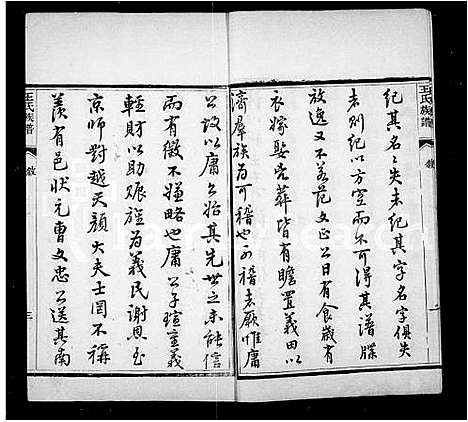 王氏族譜
敘
紀其名名失未紀其字名字俱失
未則紀以方空而不可得其譜牒
放逸又不若范文正公日有食歲有
衣嫁娶凶葬皆有贍置義田以
濟群族為可稽也可稽者厥惟庸
公設以庸公始其先世之未能信
而有徵不嫌略也庸公子瑄宣義
輕財以助賑旌為義民謝恩至
京師對越天顏大夫士罔不稱
羨有邑狀元曹文忠公送其南
王氏族譜
敘
三